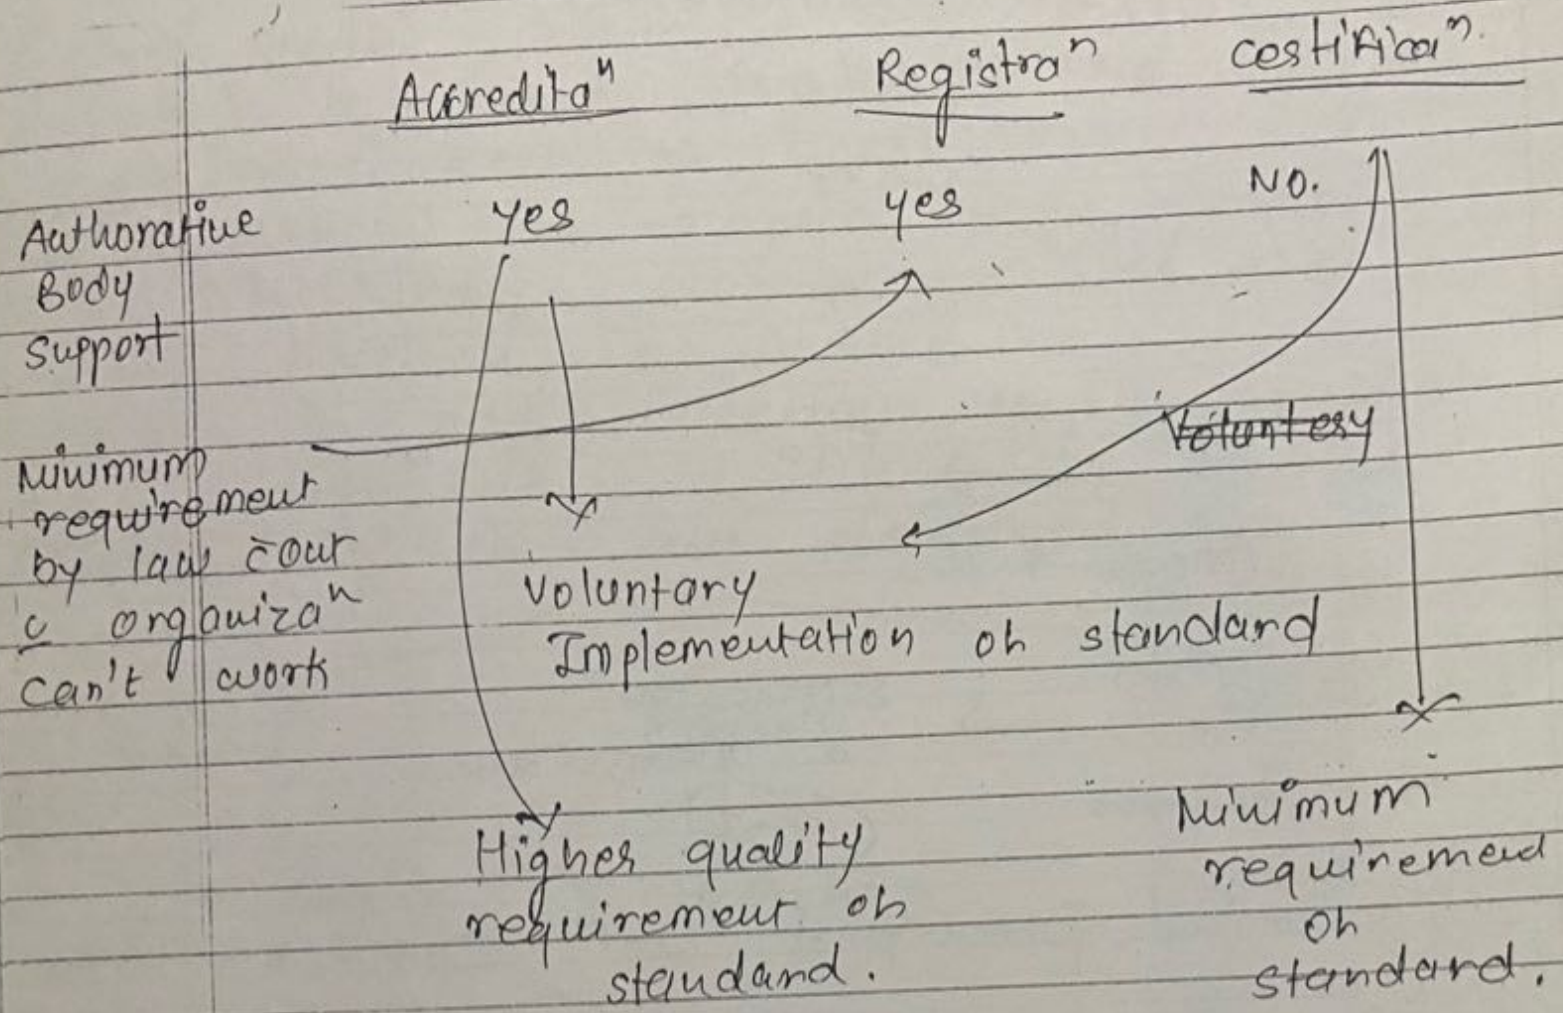 Accreditaⁿ Registraⁿ Certificaⁿ.
Authorative yes yes NO.
Body
Support
Voluntery
Minimum
requirement
by law cour
c̲ organizaⁿ
can't work
Voluntary
Implementation of standard
Higher quality
requirement of
standard.
Minimum
requirement
of
standard.